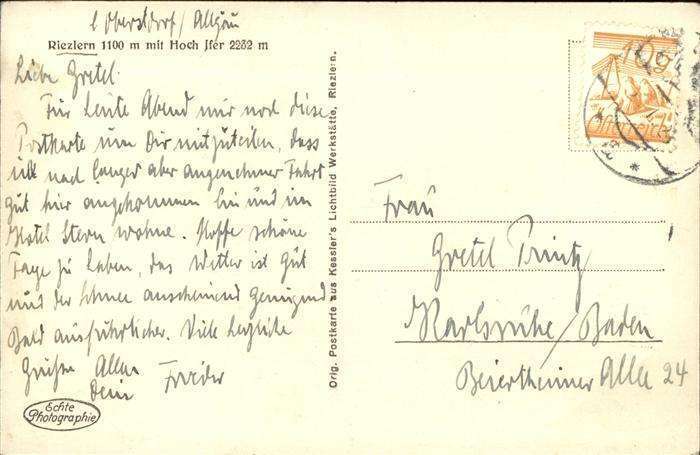 b Oberstdorf/Allgäu
Riezlern 1100 m mit Hoch Jfer 2232 m
Liebe Gretel.
Für heute Abend nur noch diese
Postkarte um Dir mitzuteilen, dass
ich nach langer aber angenehmer Fahrt
gut hier angekommen bin und im
Hotel Stern wohne. Hoffe schöne
Tage zu haben, das Wetter ist gut
und der Schnee anscheinend genügend
Bald ausführlicher. Viele herzliche
Grüße Allen
Dein Frieder
Echte
Photographie
Orig. Postkarte aus Kessler's Lichtbild Werkstätte, Riezlern.
10g
Österreich
Frau
Gretel Printz
Karlsruhe/Baden
Beiertheimer Allee 24